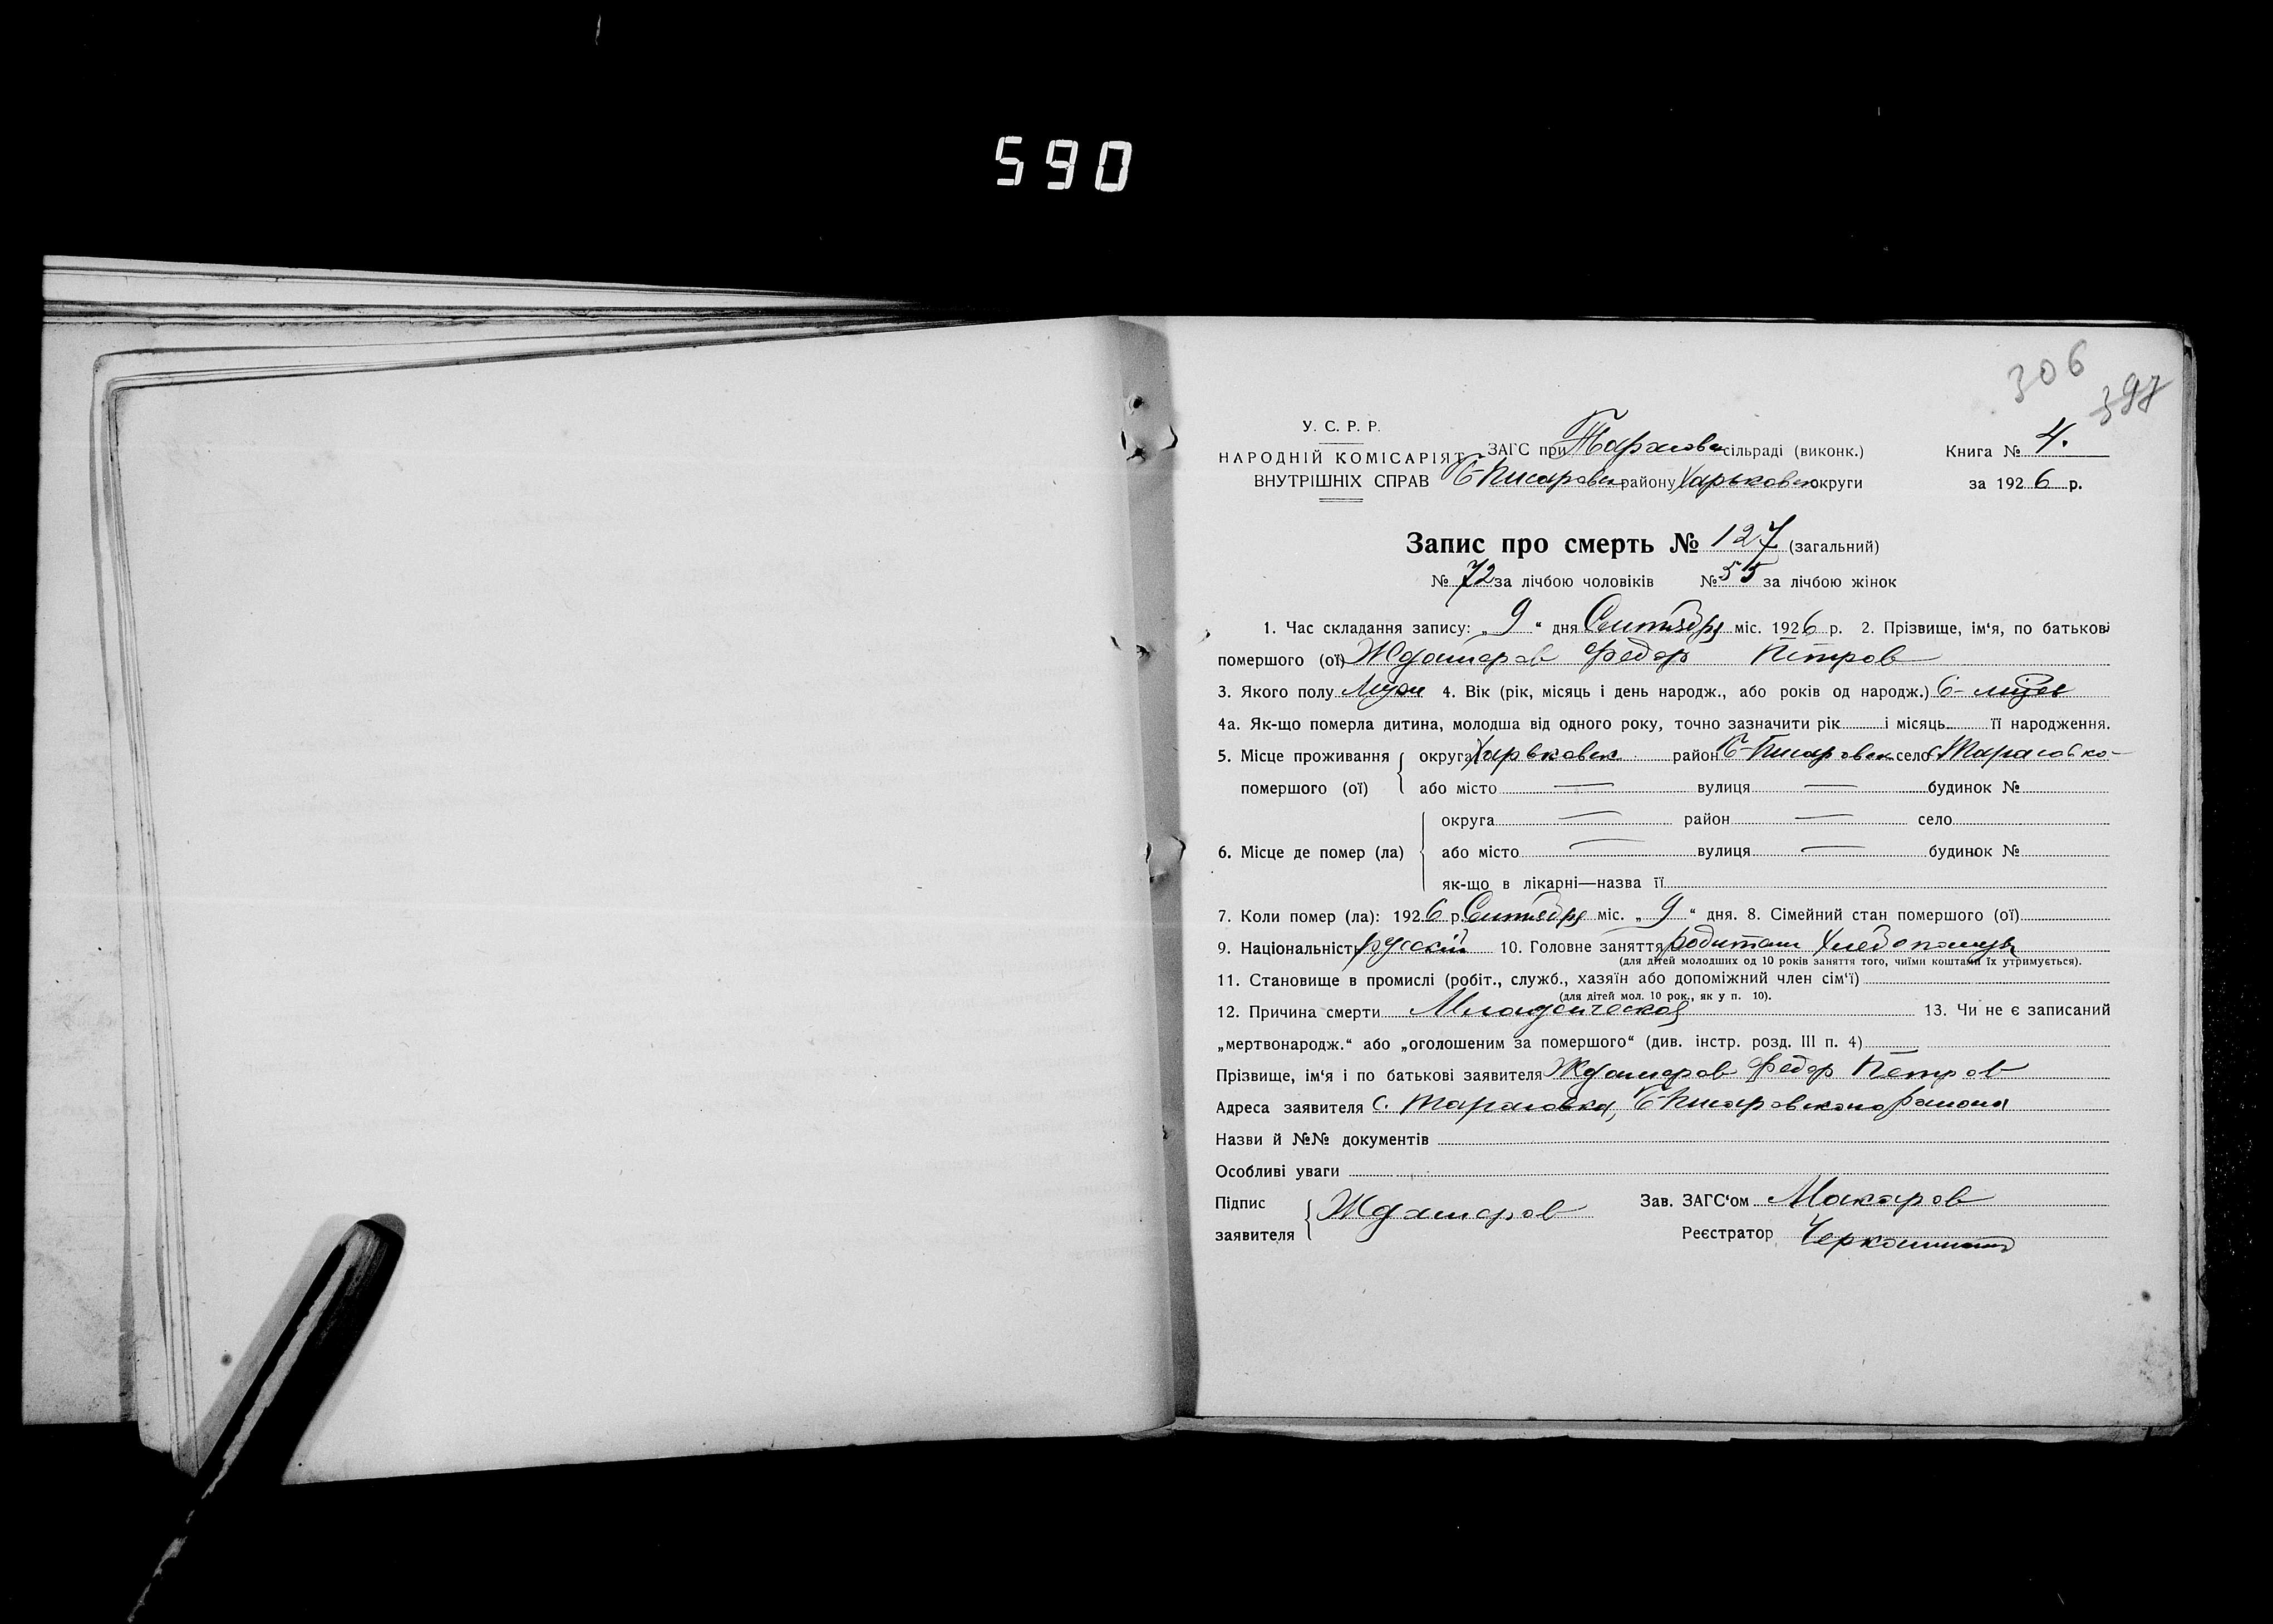 590
306
397
У. С. Р. Р.
НАРОДНІЙ КОМІСАРІЯТ
ВНУТРІШНІХ СПРАВ
ЗАГС при Тарасовск сільраді (виконк.)
Б-Писаревск району Харьковск округи
Книга № 4.
за 1926 р.
Запис про смерть № 127 (загальний)
№ 72 за лічбою чоловіків № 55 за лічбою жінок
1. Час складання запису: „ 9 “ дня Сентября міс. 1926 р. 2. Прізвище, ім‘я, по батькові
помершого (ої) Ждамеров Федор Петров
3. Якого полу Муж 4. Вік (рік, місяць і день народж., або років од народж.) 6-
4а. Як-що померла дитина, молодша від одного року, точно зазначити рік і місяць її народження.
5. Місце проживання помершого (ої) округа Харьковск район Б-Писаревск село Тарасовка
або місто — вулиця — будинок №
6. Місце де помер (ла) округа — район — село
або місто — вулиця — будинок №
як-що в лікарні—назва її
7. Коли помер (ла): 1926 р. Сентября міс. „ 9 “ дня. 8. Сімейний стан помершого (ої)
9. Національність русскій 10. Головне заняття родители хлебопашцы
(для дітей молодших од 10 років заняття того, чиїми коштами їх утримується).
11. Становище в промислі (робіт., служб., хазяїн або допоміжний член сім‘ї)
(для дітей мол. 10 рок., як у п. 10).
12. Причина смерти Младенческая 13. Чи не є записаний
„мертвонародж.“ або „оголошеним за помершого“ (див. інстр. розд. III п. 4)
Прізвище, ім‘я і по батькові заявителя Ждамеров Федор Петров
Адреса заявителя с. Тарасовка, Б-Писаревского района
Назви й №№ документів
Особливі уваги
Підпис заявителя Ждамеров
Зав. ЗАГС‘ом Макаров
Реєстратор